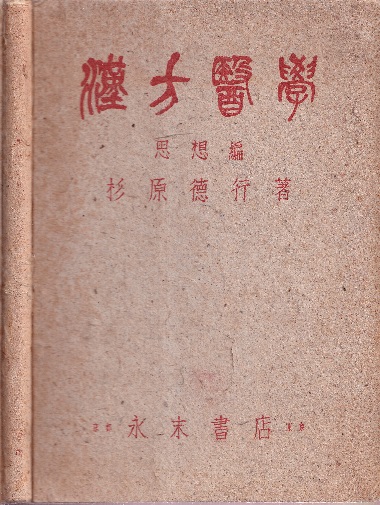 漢方醫學
思想編
杉原德行著
京都 永末書店 東京